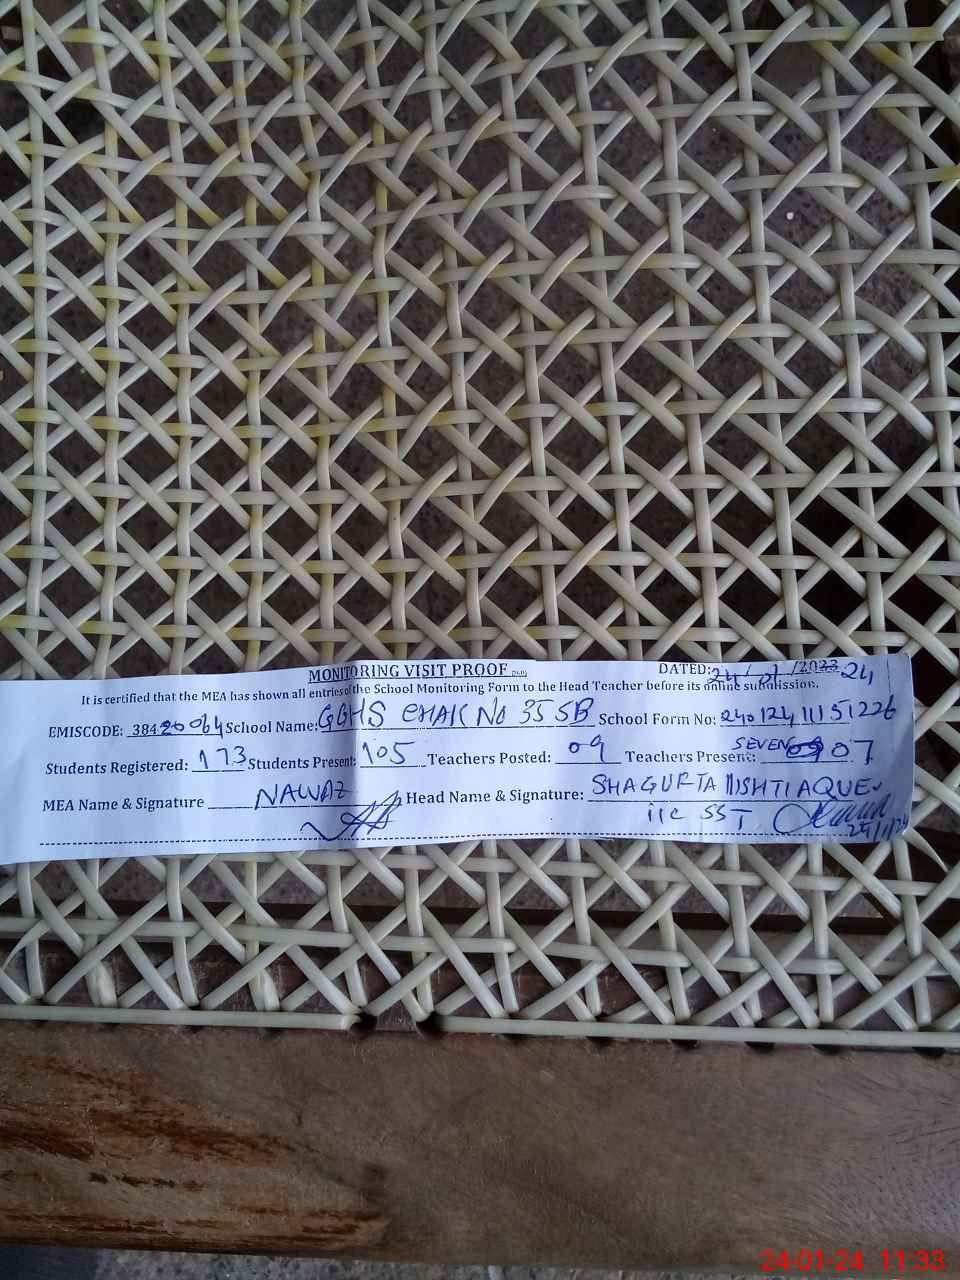 MONITORING VISIT PROOF DATED: 24/01/2023 24
It is certified that the MEA has shown all entries of the School Monitoring Form to the Head Teacher before its online submission.
EMISCODE: 38420064 School Name: GGHS CHAK No 35 SB School Form No: 240124111151226
Students Registered: 173 Students Present: 105 Teachers Posted: 09 Teachers Present: SEVEN 09 07
MEA Name & Signature NAWAZ Head Name & Signature: SHAGUFTA IISHTIAQUE
i/c SST
24/1/24
24-01-24 11:33